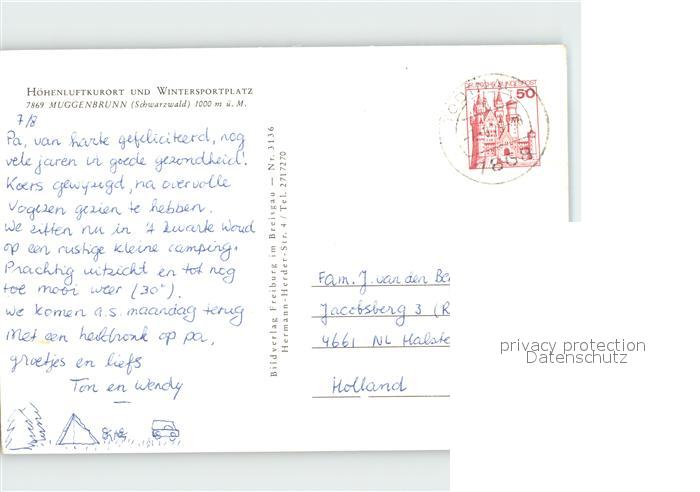 HÖHENLUFTKURORT UND WINTERSPORTPLATZ
7869 MUGGENBRUNN (Schwarzwald) 1000 m ü. M.
7/8
Pa, van harte gefeliciteerd, nog
vele jaren in goede gezondheid!
Koers gewijzigd, na overvolle
Vogezen gezien te hebben.
We zitten nu in 't Zwarte Woud
op een rustige kleine camping.
Prachtig uitzicht en tot nog
toe mooi weer (30°).
We komen a.s. maandag terug
Met een heildronk op pa,
groetjes en liefs
Ton en Wendy
Bildverlag Freiburg im Breisgau — Nr. 3136
Hermann-Herder-Str. 4 / Tel. 2717270
DEUTSCHE BUNDESPOST
50
7869
Fam. J. van den Be
Jacobsberg 3 (R
4661 NL Halste
Holland
privacy protection
Datenschutz